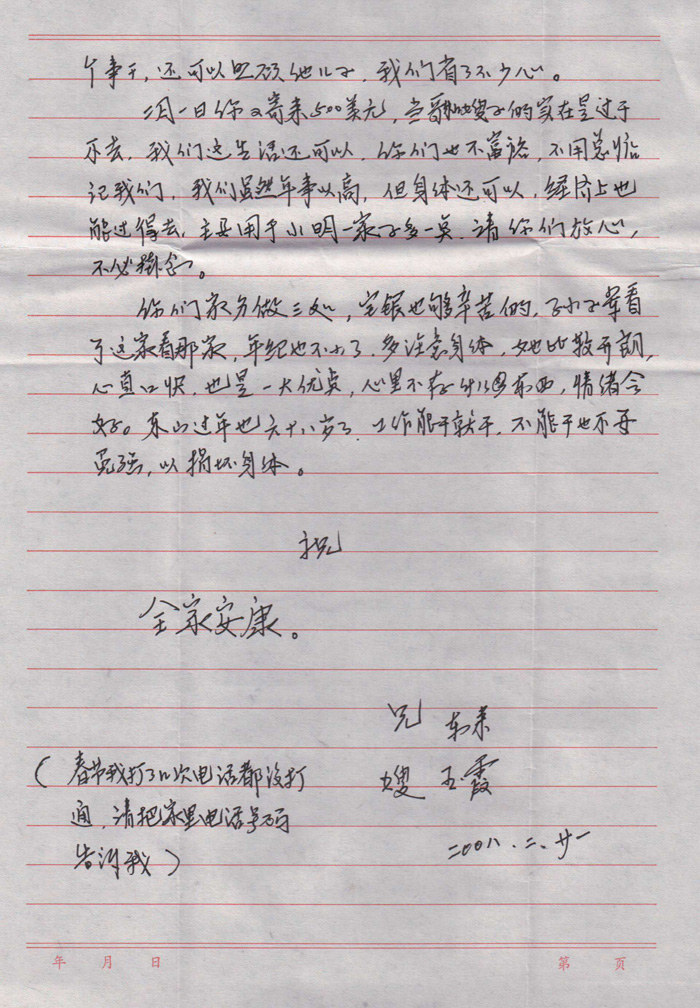 个事干,还可以照顾他儿子,我们省了不少心。
二月一日你又寄来500美元,当哥和嫂子的实在是过于
不去,我们这生活还可以,你们也不富裕,不用总惦
记我们,我们虽然年事以高,但身体还可以,经济上也
能过得去,主要用于小明一家子多一点.请你们放心,
不必挂念。
你们家分做三处,宝银也够辛苦的,
了这家看那家,年纪也不小了,多注意身体,她比较开朗,
心直口快,也是一大优点,心里不存东西,情绪会
好。东山过年也六十八岁了,工作能干就干,不能干也不再
勉强,以损坏身体。
祝
全家安康。
兄 东来
嫂 玉霞
二00八.二、廿一
(春节我打了几次电话都没打
通,请把家里电话号码
告诉我)
年 月 日
第 页